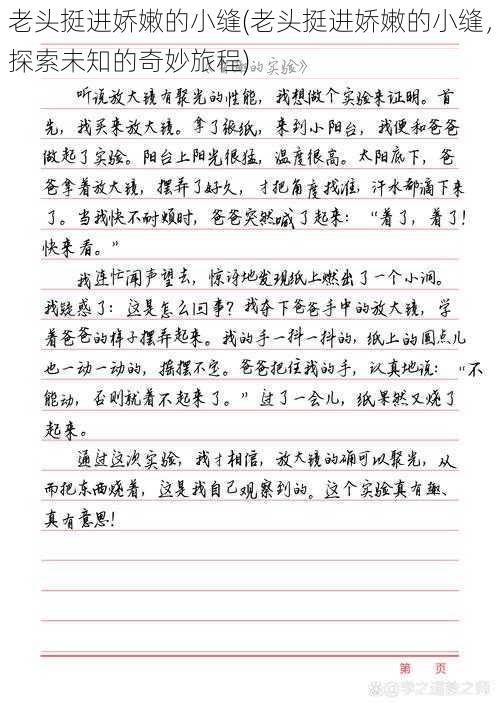 老头挺进娇嫩的小缝(老头挺进娇嫩的小缝,
探索未知的奇妙旅程)
的实验》
听说放大镜有聚光的性能，我想做个实验来证明。首
先，我买来放大镜。拿了张纸，来到小阳台，我便和爸爸
做起了实验。阳台上阳光很猛，温度很高。太阳底下，爸
爸拿着放大镜，摆弄了好久，才把角度找准，汗水都滴下来
了。当我快不耐烦时，爸爸突然喊了起来：“着了，着了！
快来看。”
我连忙闻声望去，惊讶地发现纸上燃出了一个小洞。
我疑惑了：这是怎么回事？我夺下爸爸手中的放大镜，学
着爸爸的样子摆弄起来。我的手一抖一抖的，纸上的圆点儿
也一动一动的，摇摆不定。爸爸把住我的手，认真地说：“不
能动，否则就着不起来了。”过了一会儿，纸果然又烧了
起来。
通过这次实验，我才相信，放大镜的确可以聚光，从
而把东西烧着，这是我自己观察到的。这个实验真有趣、
真有意思！
第 页
@学之道教之师